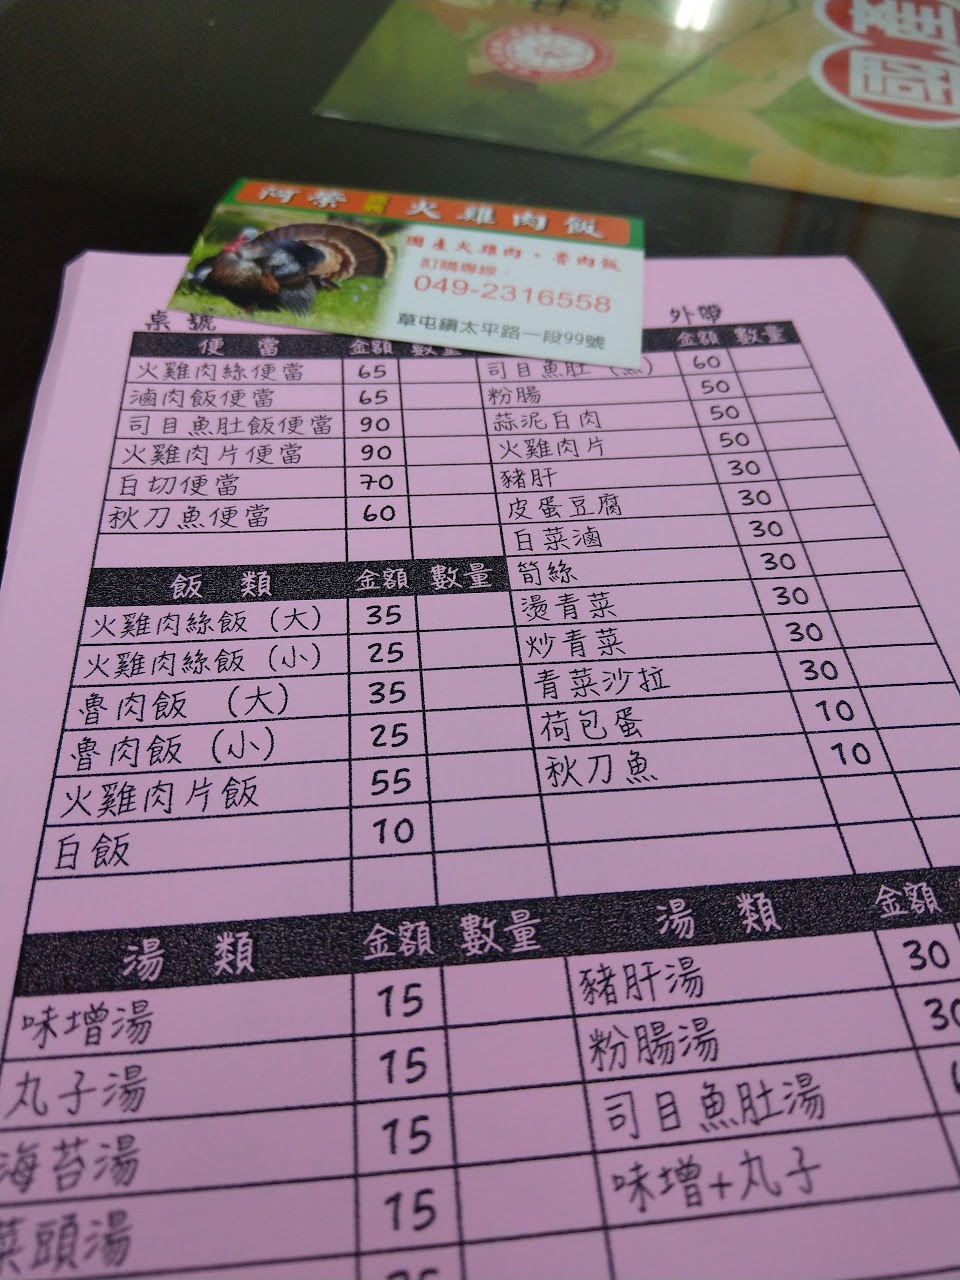 國產
阿榮 火雞肉飯
國產火雞肉。魯肉飯
訂購專線：
049-2316558
草屯鎮太平路一段99號
桌號
外帶
便 當 金額 數量
火雞肉絲便當 65
滷肉飯便當 65
司目魚肚飯便當 90
火雞肉片便當 90
白切便當 70
秋刀魚便當 60
飯 類 金額 數量
火雞肉絲飯（大） 35
火雞肉絲飯（小） 25
魯肉飯 （大） 35
魯肉飯（小） 25
火雞肉片飯 55
白飯 10
金額 數量
司目魚肚（魚） 60
粉腸 50
蒜泥白肉 50
火雞肉片 50
豬肝 30
皮蛋豆腐 30
白菜滷 30
筍絲 30
燙青菜 30
炒青菜 30
青菜沙拉 30
荷包蛋 10
秋刀魚 10
湯 類 金額 數量
味增湯 15
丸子湯 15
海苔湯 15
菜頭湯 15
湯 類 金額
豬肝湯 30
粉腸湯 30
司目魚肚湯
味增+丸子